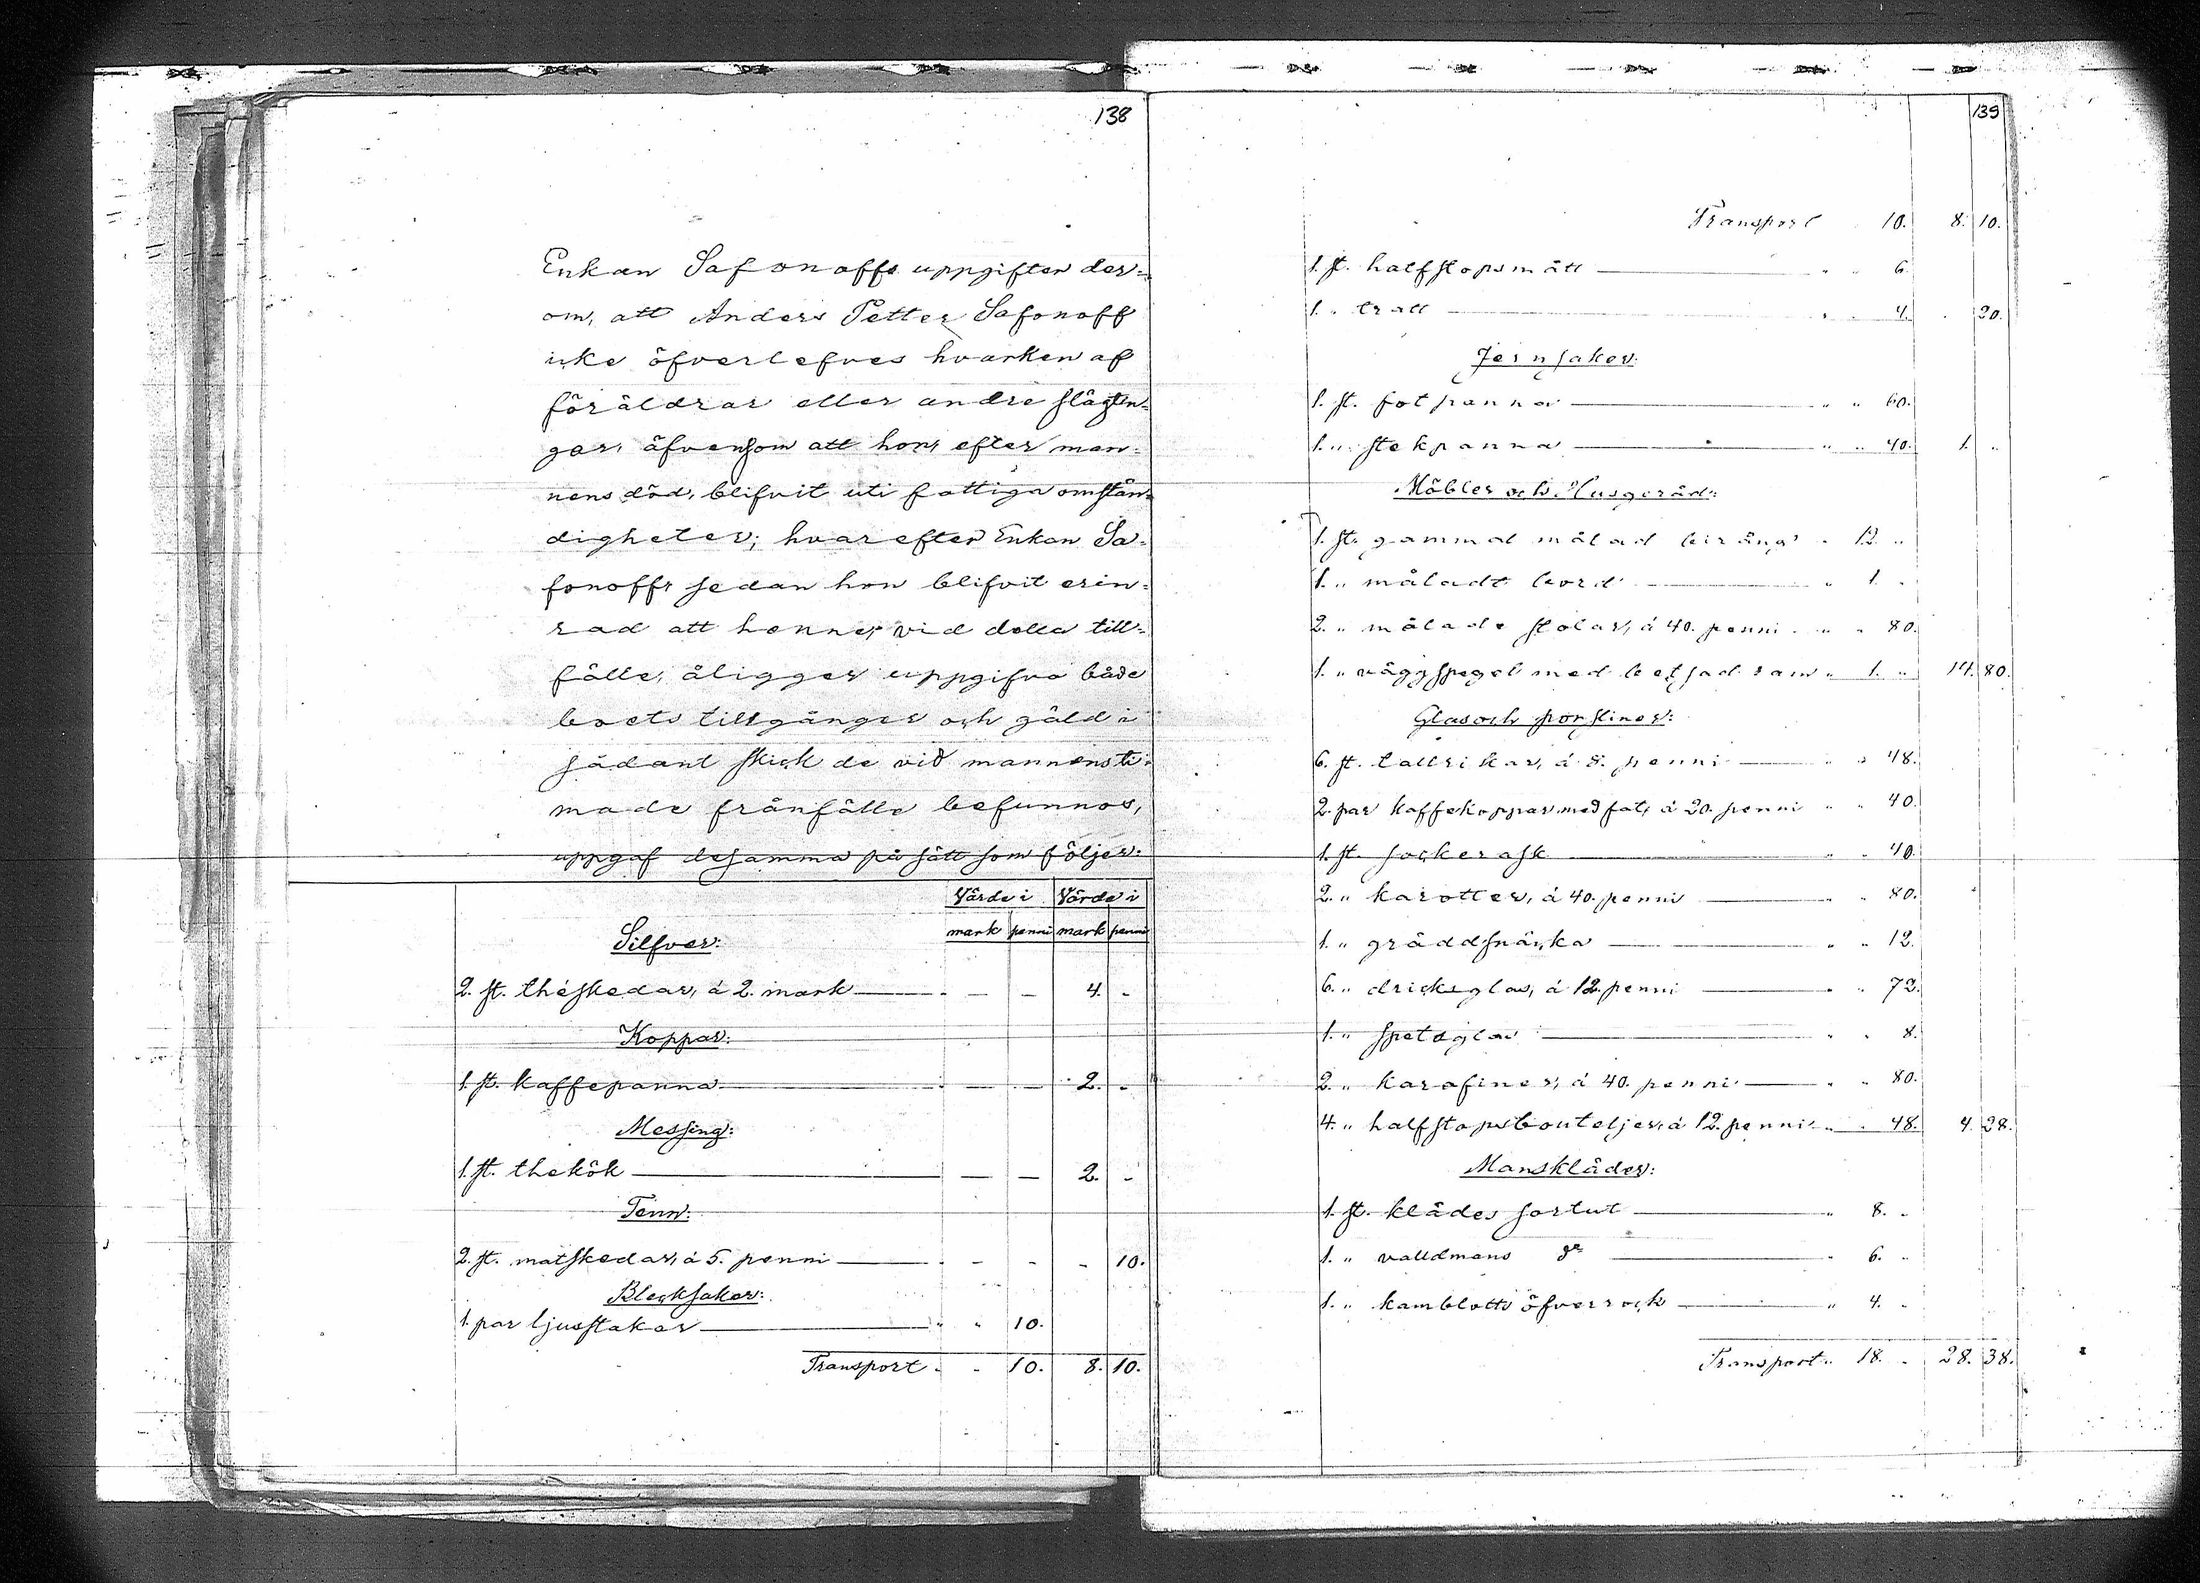 138
Enkan Safonoffs uppgifter der=
om, att Anders Petter Safonoff
icke öfverlefves hvarken af
föräldrar eller andre slägtin=
gar, äfvensom att hon, efter man=
nens död, blifvit uti fattiga omstän=
digheter; hvarefter Enkan Sa=
fonoff, sedan hon blifvit erin=
rad att henne, vid detta till=
fälle, åligger uppgifva både
boets tillgångar och gäld i
sådant skick de vid mannens ti=
made frånfälle befunnos,
uppgaf desamma på sätt som följer:
Värde i Värde i
mark penni mark penni
Silfver:
2. st. théskedar, á 2. mark — — — 4. -
Koppar:
1. st. kaffepanna — — — 2. -
Messing:
1. st. thekök — — — 2. -
Tenn:
2. st. matskedar, á 5. penni — - - - 10.
Blecksaker:
1. par ljusstakar — " " 10.
Transport - - 10. 8. 10.
139
Transport 10. 8. 10.
1. st. halfstopsmått — " " 6.
1. " tratt — " " 4. . 20.
Jernsaker:
1. st. fotpanna — " " 60.
1. " stekpanna — " " 40. 1. "
Möbler och Husgeråd:
1. st. gammal målad " 12. "
1. " måladt bord — " 1. "
2. " målade stolar, á 40. penni " " 80.
1. " väggspegel med betsad ram " 1. " 14. 80.
Glas och porsliner:
6. st. tallrikar, á 8. penni — " " 48.
2. par kaffekoppar med fat, á 20. penni " " 40.
1. st. sockerask — " " 40.
2. " karotter, á 40. penni — " " 80.
1. " gräddsnäcka — " " 12.
6. " dricksglas, á 12. penni — " " 72.
1. " spetsglas — " " 8.
2. " karafiner, á 40. penni — " " 80.
4. " halfstopsbouteljer, á 12. penni " " 48. 4. 28.
Manskläder:
1. st. klädes sortut — " 8. "
1. " valldmans do — " 6. "
1. " kamblotts öfverrock — " 4. "
Transport " 18. " 28. 38.